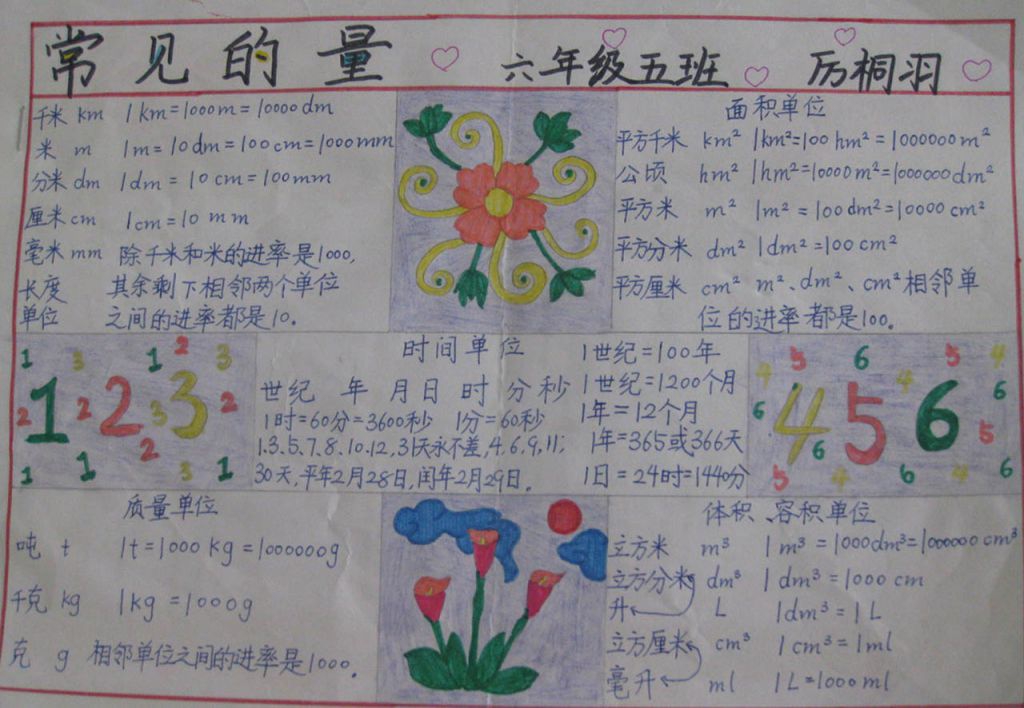 常见的量 六年级五班 厉桐羽
千米 km 1km=1000m=10000dm
米 m 1m=10dm=100cm=1000mm
分米 dm 1dm=10cm=100mm
厘米 cm 1cm=10mm
毫米 mm 除千米和米的进率是1000,
长度 其余剩下相邻两个单位
单位 之间的进率都是10。
面积单位
平方千米 km² 1km²=100hm²=1000000m²
公顷 hm² 1hm²=10000m²=1000000dm²
平方米 m² 1m²=100dm²=10000cm²
平方分米 dm² 1dm²=100cm²
平方厘米 cm² m²、dm²、cm²相邻单
位的进率都是100。
1 3 1 2 3
1 2 3
2 2 3 2
2
1 1 3 1
时间单位
世纪 年 月 日 时 分 秒
1时=60分=3600秒 1分=60秒
1.3.5.7.8.10.12,31天永不差,4,6,9,11;
30天,平年2月28日,闰年2月29日.
1世纪=100年
1世纪=1200个月
1年=12个月
1年=365或366天
1日=24时=1440分
5 6 5 4
4 4 6
4 5 6
6 6 5
5 4 6 4 6
质量单位
吨 t 1t=1000kg=1000000g
千克 kg 1kg=1000g
克 g 相邻单位之间的进率是1000.
体积、容积单位
立方米 m³ 1m³=1000dm³=1000000cm³
立方分米 dm³ 1dm³=1000cm
升 L 1dm³=1L
立方厘米 cm³ 1cm³=1ml
毫升 ml 1L=1000ml